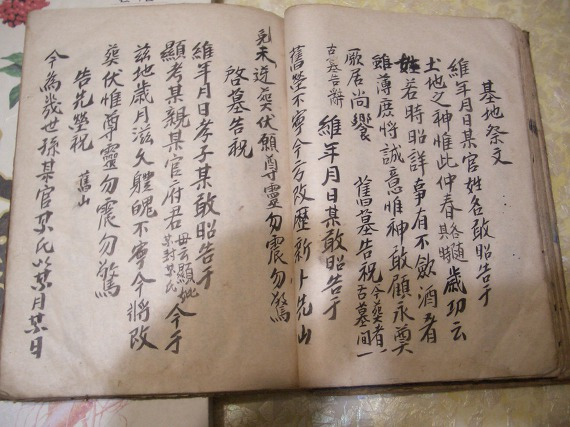 基地祭文
維年月日某官姓名敢昭告于
土地之神惟此仲春各隨其時歲功云
若時昭詳事有不飮酒者
雖薄庶將誠意惟神敢顧永奠
厥居尙饗 舊墓告祝 今葬者一古墓間一
古墓告辭 維年月日某敢昭告于
舊塋不寧今方改歷新卜先山
免未逆葬伏願尊靈勿震勿驚
啓墓告祝
維年月日孝子某敢昭告于
顯考某親某官府君 母云顯妣某封某氏 今于
玆地歲月滋久體魄不寧今將改
葬伏惟尊靈勿震勿驚
告先塋祝 舊山
今為幾世孫某官某氏以某月某日